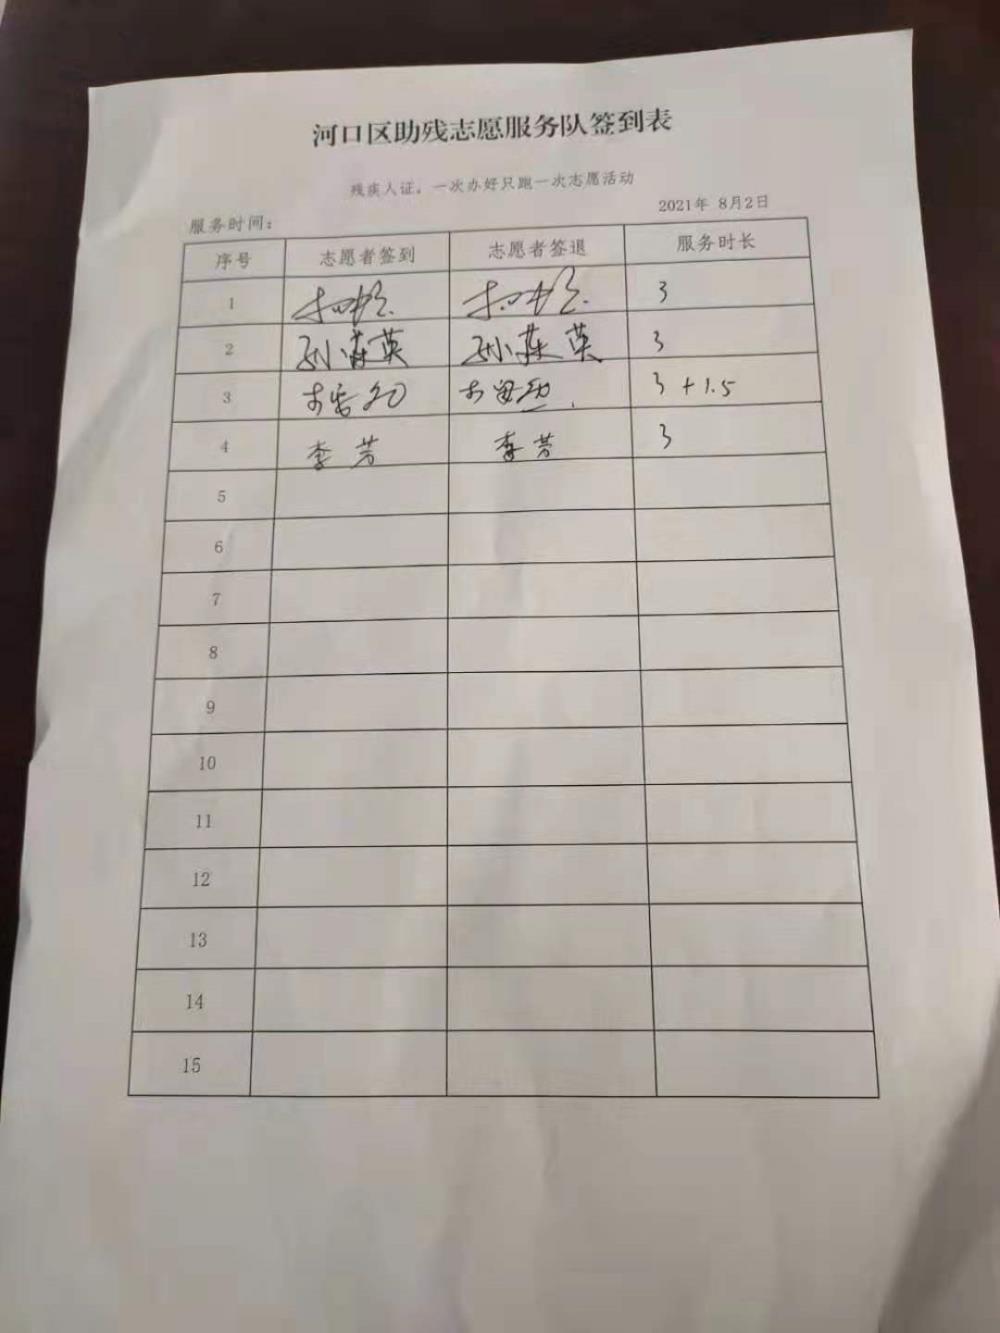 河口区助残志愿服务队签到表
残疾人证，一次办好只跑一次志愿活动
服务时间： 2021年 8月2日
序号 志愿者签到 志愿者签退 服务时长
1 3
2 孙 英 孙 英 3
3 3 + 1.5
4 李芳 李芳 3
5
6
7
8
9
10
11
12
13
14
15